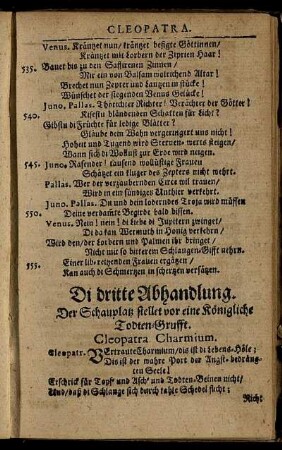 CLEOPATRA.
Venus. Kräntzet nun/ kräntzet besigte Göttinnen/
Kräntzet mit Lorbern der Zyprien Haar!
535. Bauet bis zu den Saffirenen Zinnen/
Mir ein von Balsam wolrichend Altar!
Brechet nun Zepter und Lantzen in stücke!
Wünschet der siegenden Venus Gelücke!
Juno. Pallas. Thörichter Richter! Verächter der Götter!
540. Kisestu bländenden Schatten für Licht?
Gibstu di Früchte für ledige Blätter?
Gläube dein Wahn vergeringert uns nicht!
Hoheit und Tugend wird Sternen-werts steigen/
Wann sich di Wollust zur Erde wird neigen.
545. Juno. Rasender! tausend wollüstige Frauen
Schützet ein fluger des Zepters nicht mehr.
Pallas. Wer der verzaubernden Circe wil trauen/
Wird in ein sünstiges Unthier verkehrt.
Juno. Pallas. Du und dein loderndes Troja wird müssen
550. Deine verdamte Begirde bald büssen.
Venus. Nein! nein! di Libe di Jupitern zwinget/
Di da kan Wermuth in Honig verkehrn/
Wird den/ der Lorbern und Palmen ihr bringet/
Nicht mit so bitterem Schlangen-Gifft nehrn.
555. Einer lib-reitzenden Frauen ergötzen/
Kan auch di Schmertzen in schertzen versätzen.
Di dritte Abhandlung.
Der Schauplatz stellet vor eine Königliche
Todten-Grufft.
Cleopatra Charmium.
Cleopatr. VErtraute Charmium/ dis ist di Lebens-Höle;
Dis ist der wahre Port der Angst-bedräng-
ten Seele!
Erschrick für Topf und Asch' und Todten-Beinen nicht/
Und/ daß di Schlange sich durch kahle Schedel flicht;
Nicht